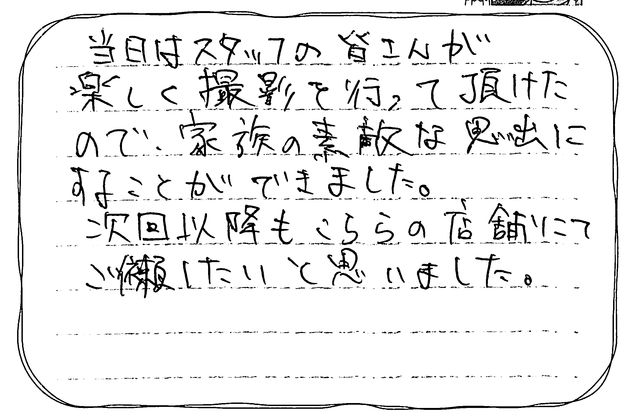 当日はスタッフの皆さんが
楽しく撮影を行って頂けた
ので、家族の素敵な思い出に
することができました。
次回以降もこちらの店舗にて
ご依頼したいと思いました。